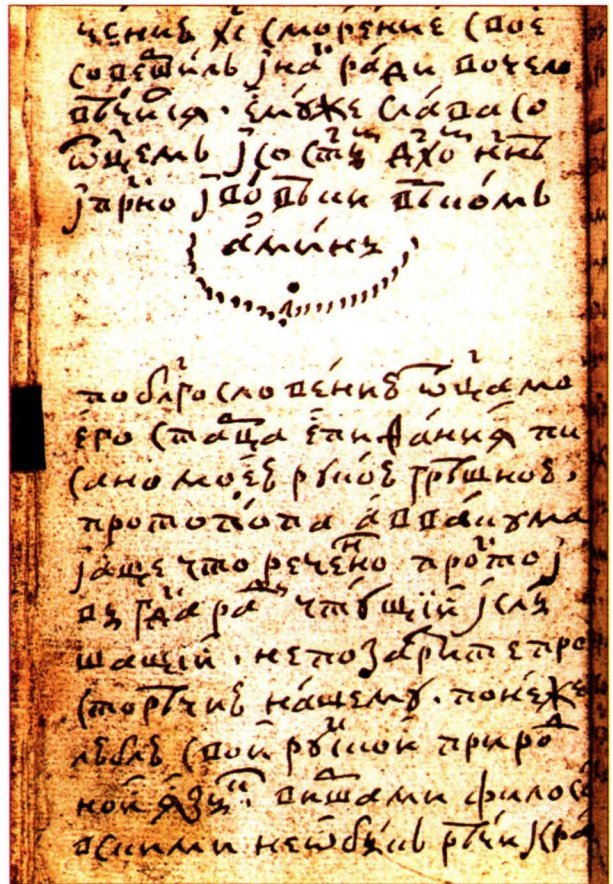 чениѣ хс смотрение свое
совершилъ ј насъ ради вочело
вѣчийся · емуже слава со
ѿцемъ ј со стым дхом ннѣ
ј прно ј во вѣки вѣкомъ
аминь
по блгословениꙋ ѿца мо
его старца епифания пи
сано моеꙋ рꙋкоꙋ грѣшноꙋ ·
протопопа аввакума
ј аще что речено просто ј
въ гда ради чтꙋщии ј слы
шащии · не позазрите про
сторѣчиꙋ нашемꙋ · понеже
лꙋблꙋ свой рꙋской природ
ной языкъ · виршами филосо
вскими не ѡбыкъ рѣчи јкра